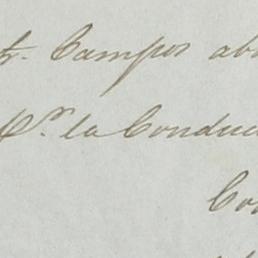 Campos
Pr. la Conduc
Co